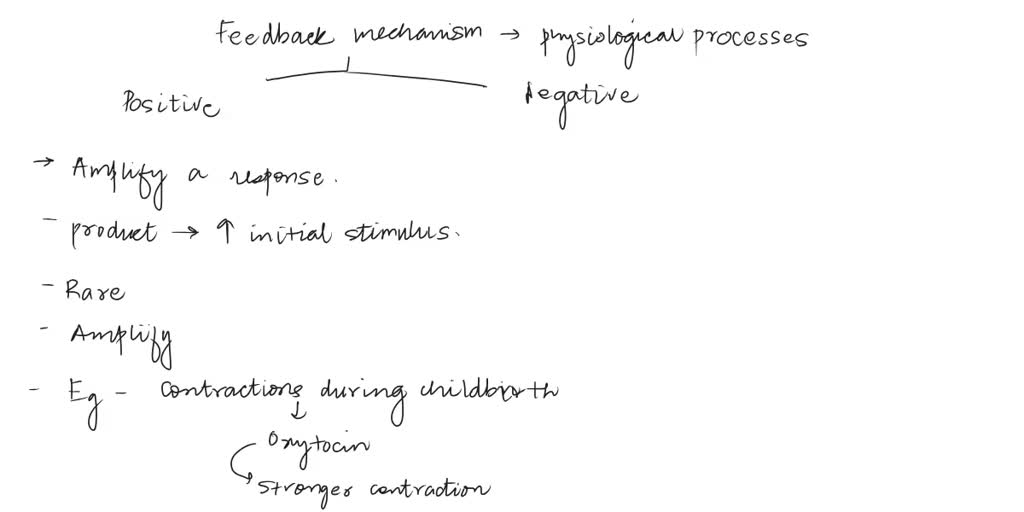 Feedback mechanism → physiological processes
Positive
Negative
→ Amplify a response.
- product → ↑ initial stimulus.
- Rare
- Amplify
- Eg - contractions during childbirth
↓
Oxytocin
→ stronger contraction